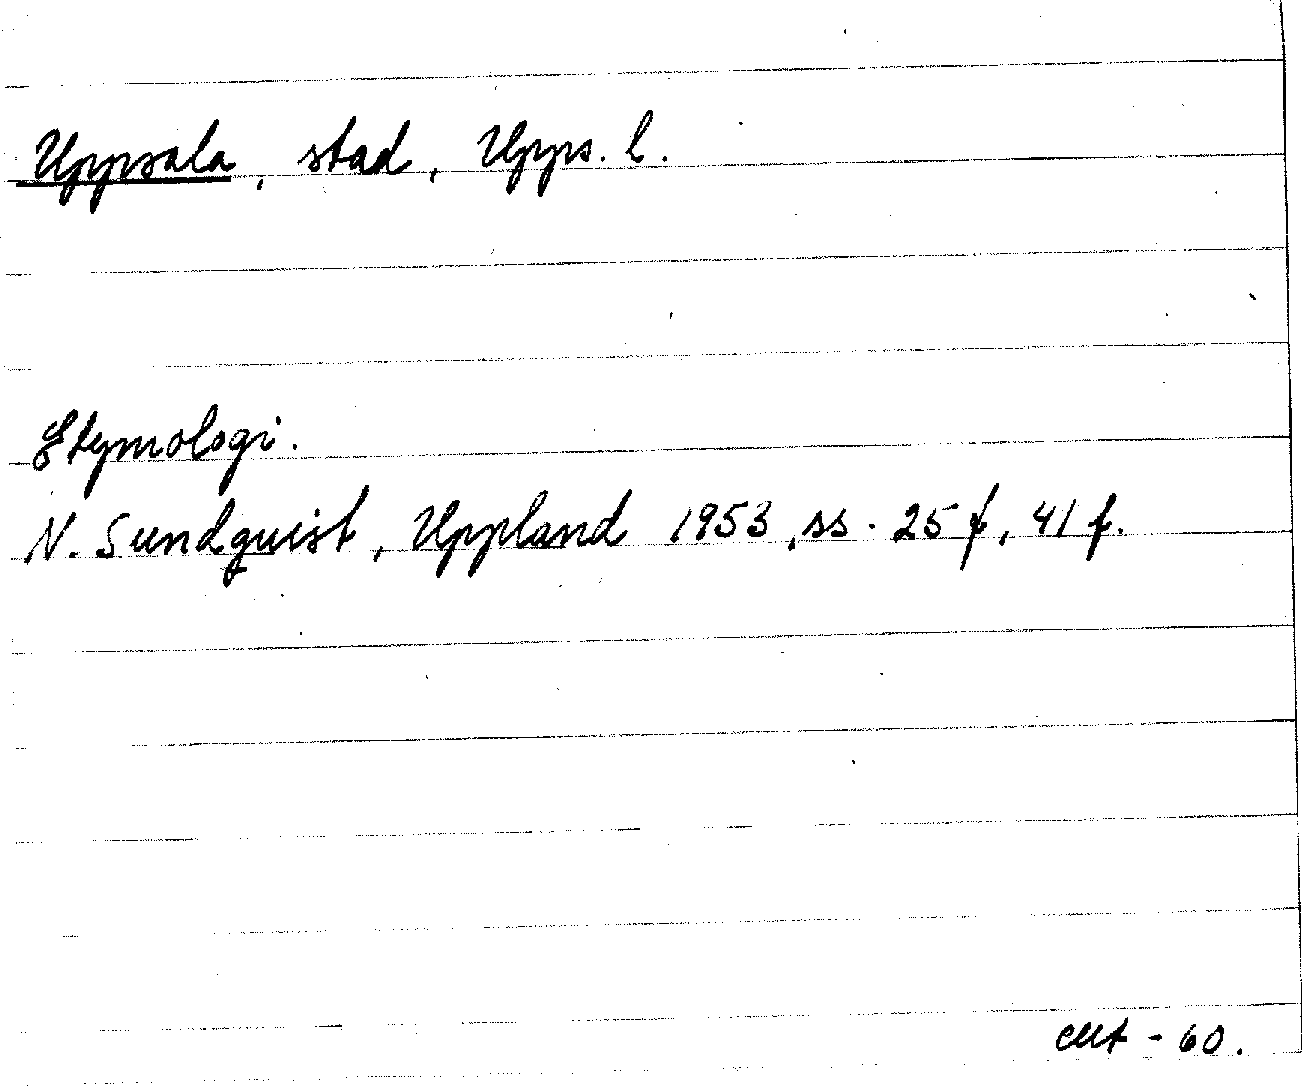 Uppsala, stad, Upps. l.
Etymologi.
N. Sundquist, Uppland 1953, ss. 25 f, 41 f.
- 60.